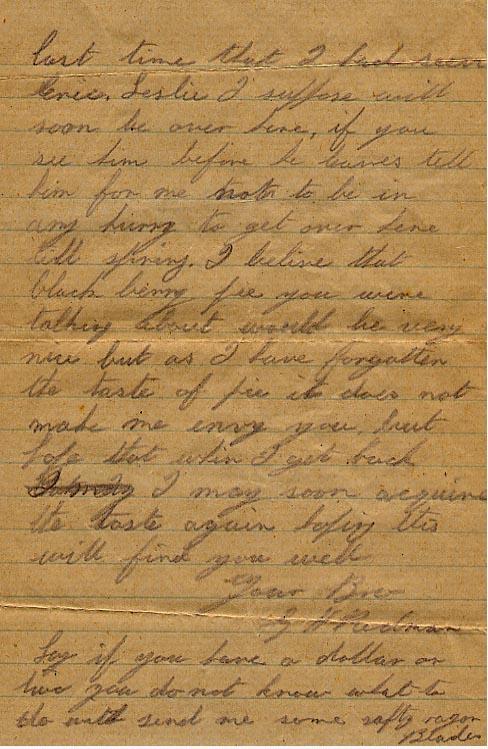 last time that I had seen
Eric. Leslie I suppose will
soon be over here, if you
see him before he leaves tell
him for me not to be in
any hurry to get over here
till spring. I belive that
black berry pie you were
talking about would be very
nice but as I have forgotten
the taste of pie it does not
make me envy you, but
hope that when I get back
I may soon acquire
the taste again hoping this
will find you well
Your Bro
Redman
Say if you have a dollar or
two you do not know what to
do with send me some safty razor
Blades